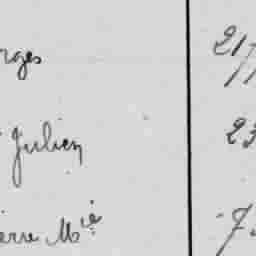 rges 217
Julien 23
erre Mie 7